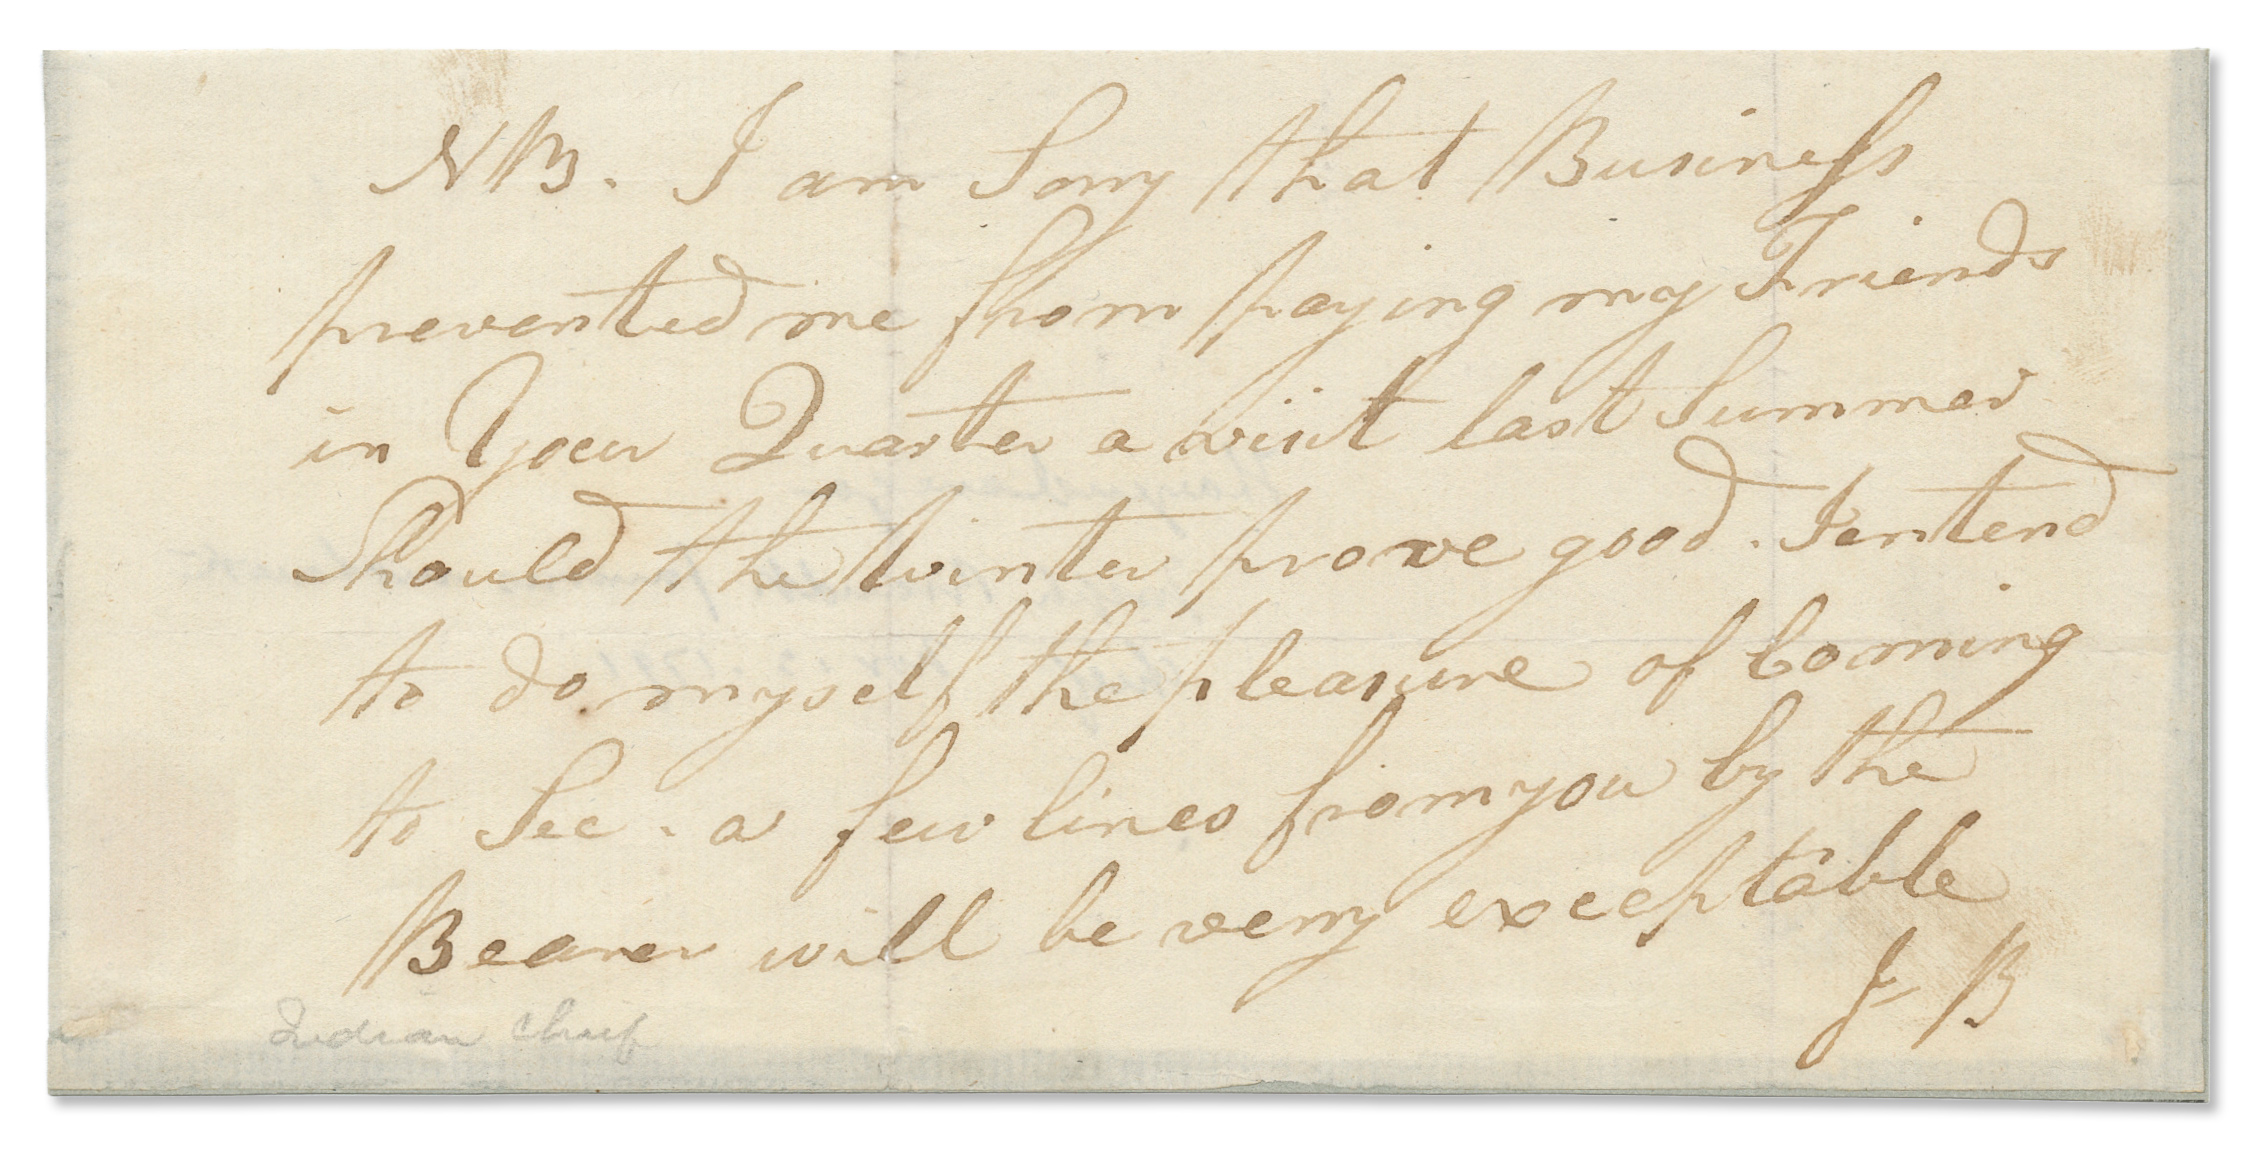 NB. I am Sorry that Business
prevented me from paying my Friends
in Your Quarter a visit last Summer
Should the Winter prove good. I entend
to do myself the pleasure of Coming
to See. a few lines from you by the
Bearer will be verry exceptable
J B
Indian Chief